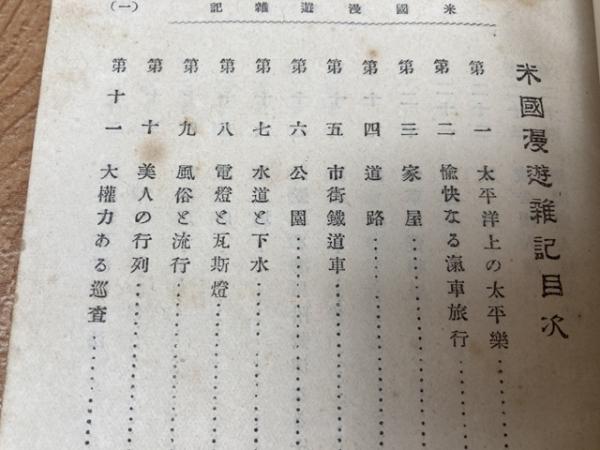 米國漫遊雜記
(一)
米國漫遊雜記目次
第一 太平洋上の太平樂
第二 愉快なる滊車旅行
第三 家屋
第四 道路
第五 市街鐵道車
第六 公園
第七 水道と下水
第八 電燈と瓦斯燈
第九 風俗と流行
第十 美人の行列
第十一 大權力ある巡査